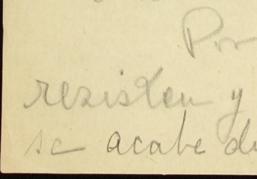 Por
resisten y
se acabe de